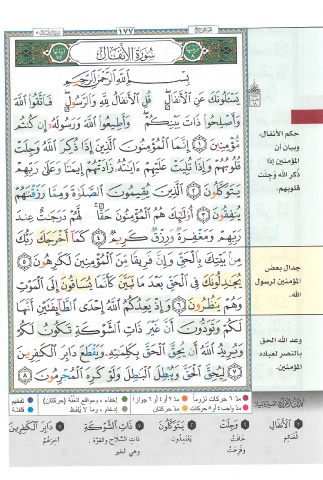 ١٧٧
سُورَةُ الأَنفَالِ
بِسْمِ اللَّهِ الرَّحْمَٰنِ الرَّحِيمِ
يَسْـَٔلُونَكَ عَنِ الْأَنفَالِ ۖ قُلِ الْأَنفَالُ لِلَّهِ وَالرَّسُولِ ۖ فَاتَّقُوا اللَّهَ
وَأَصْلِحُوا ذَاتَ بَيْنِكُمْ ۖ وَأَطِيعُوا اللَّهَ وَرَسُولَهُ إِن كُنتُم
مُّؤْمِنِينَ ١ إِنَّمَا الْمُؤْمِنُونَ الَّذِينَ إِذَا ذُكِرَ اللَّهُ وَجِلَتْ
قُلُوبُهُمْ وَإِذَا تُلِيَتْ عَلَيْهِمْ ءَايَٰتُهُ زَادَتْهُمْ إِيمَٰنًا وَعَلَىٰ رَبِّهِمْ
يَتَوَكَّلُونَ ٢ الَّذِينَ يُقِيمُونَ الصَّلَوٰةَ وَمِمَّا رَزَقْنَٰهُمْ
يُنفِقُونَ ٣ أُولَٰئِكَ هُمُ الْمُؤْمِنُونَ حَقًّا ۚ لَّهُمْ دَرَجَٰتٌ عِندَ
رَبِّهِمْ وَمَغْفِرَةٌ وَرِزْقٌ كَرِيمٌ ٤ كَمَا أَخْرَجَكَ رَبُّكَ
مِن بَيْتِكَ بِالْحَقِّ وَإِنَّ فَرِيقًا مِّنَ الْمُؤْمِنِينَ لَكَٰرِهُونَ ٥
يُجَٰدِلُونَكَ فِي الْحَقِّ بَعْدَ مَا تَبَيَّنَ كَأَنَّمَا يُسَاقُونَ إِلَى الْمَوْتِ
وَهُمْ يَنظُرُونَ ٦ وَإِذْ يَعِدُكُمُ اللَّهُ إِحْدَى الطَّائِفَتَيْنِ أَنَّهَا
لَكُمْ وَتَوَدُّونَ أَنَّ غَيْرَ ذَاتِ الشَّوْكَةِ تَكُونُ لَكُمْ
وَيُرِيدُ اللَّهُ أَن يُحِقَّ الْحَقَّ بِكَلِمَٰتِهِ وَيَقْطَعَ دَابِرَ الْكَٰفِرِينَ
٧ لِيُحِقَّ الْحَقَّ وَيُبْطِلَ الْبَٰطِلَ وَلَوْ كَرِهَ الْمُجْرِمُونَ ٨
حكم الأنفال،
وبيان أن
المؤمنين إذا
ذكر الله وَجِلت
قلوبهم.
جدال بعض
المؤمنين لرسول
الله.
وعد الله الحق
بالنصر لعباده
المؤمنين.
مدّ ٦ حركات لزوماً مدّ ٢ أو ٤ أو ٦ جوازاً إخفاء، ومواقع الغنّة (حركتان) تفخيم
مدّ واجب ٤ أو ٥ حركات مدّ حركتان إدغام، وما لا يُلفظ قلقلة
١ الأَنْفَالِ ٢ وَجِلَتْ ٢ يَتَوَكَّلُونَ ٧ ذَاتِ الشَّوْكَةِ ٧ دَابِرَ الْكَافِرِينَ
الغنائم خافت يعتمدون ذات السلاح والقوة. آخرهم
وفزعت وهي النفير